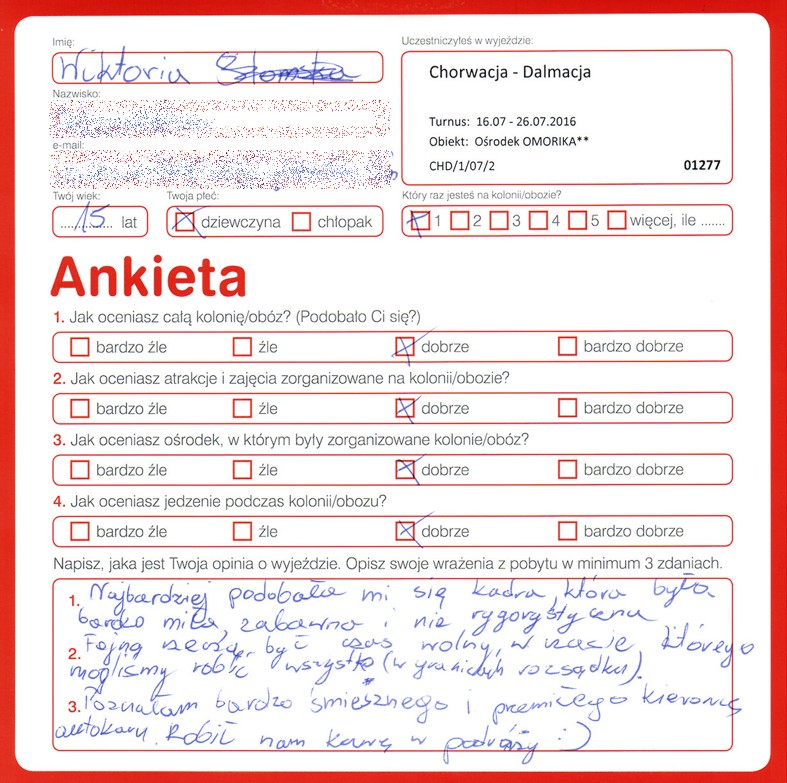 Imię:
Wiktoria
Uczestniczyłeś w wyjeździe:
Chorwacja - Dalmacja
Turnus: 16.07 - 26.07.2016
Obiekt: Ośrodek OMORIKA**
CHD/1/07/2 01277
Nazwisko:
e-mail:
Twój wiek: Twoja płeć: Który raz jesteś na kolonii/obozie?
15 lat dziewczyna chłopak 1 2 3 4 5 więcej, ile .......
Ankieta
1. Jak oceniasz całą kolonię/obóz? (Podobało Ci się?)
bardzo źle źle dobrze bardzo dobrze
2. Jak oceniasz atrakcje i zajęcia zorganizowane na kolonii/obozie?
bardzo źle źle dobrze bardzo dobrze
3. Jak oceniasz ośrodek, w którym były zorganizowane kolonie/obóz?
bardzo źle źle dobrze bardzo dobrze
4. Jak oceniasz jedzenie podczas kolonii/obozu?
bardzo źle źle dobrze bardzo dobrze
Napisz, jaka jest Twoja opinia o wyjeździe. Opisz swoje wrażenia z pobytu w minimum 3 zdaniach.
1. Najbardziej podobała mi się kadra, która była
bardzo miła, zabawna i nie rygorystyczna
2. Fajną rzeczą, był czas wolny, w czasie, którego
mogliśmy robić wszystko (w granicach rozsądku).
3. Poznałam bardzo śmiesznego i przemiłego kierowcę
autokaru. Robił nam kawę w podróży :)